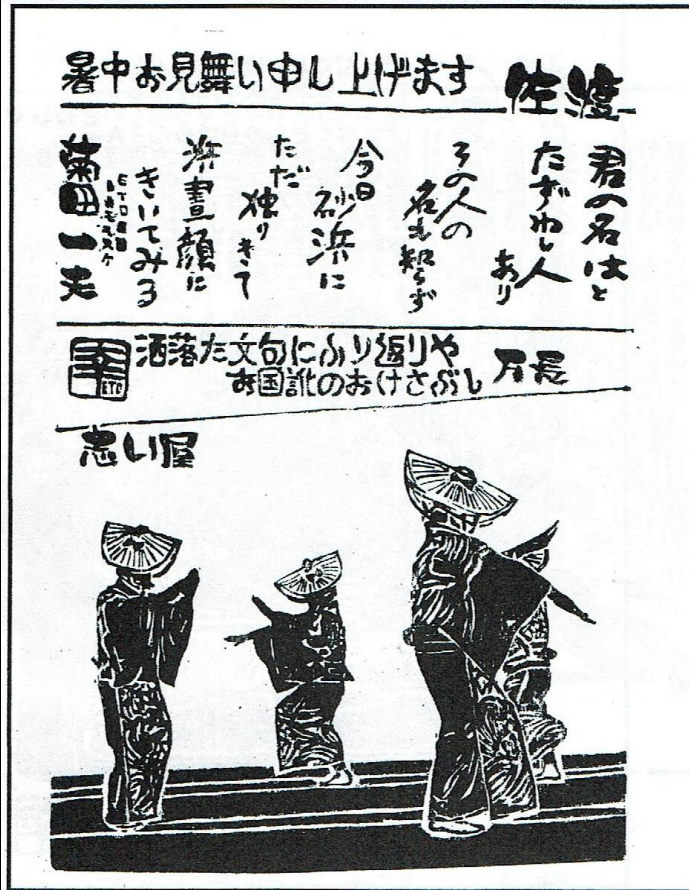 暑中お見舞い申し上げます
佐渡
君の名はと
たずねし人
あり
その人の
名も知らず
今日砂浜に
ただ
独りきて
浜昼顔に
きいてみる
菊田一夫
洒落た文句にふり返りや
お国訛のおけさぶし
万長
思い屋